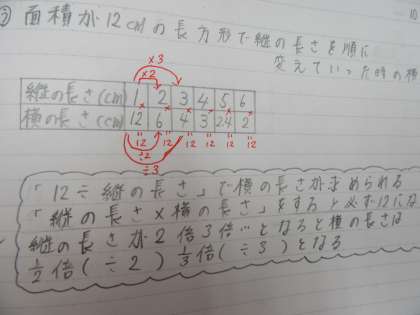 ② 面積が12cmの長方形で縦の長さを順に
変えていった時の横
×3
×2
縦の長さ(cm) 1 2 3 4 5 6
× × × × × ×
横の長さ(cm) 12 6 4 3 2.4 2
= = = = = =
12 12 12 12 12 12
÷2
÷3
「12÷縦の長さ」で横の長さが求められる
「縦の長さ×横の長さ」をすると必ず12にな
縦の長さが2倍3倍…となると横の長さは
1/2倍(÷2) 1/3倍(÷3)となる